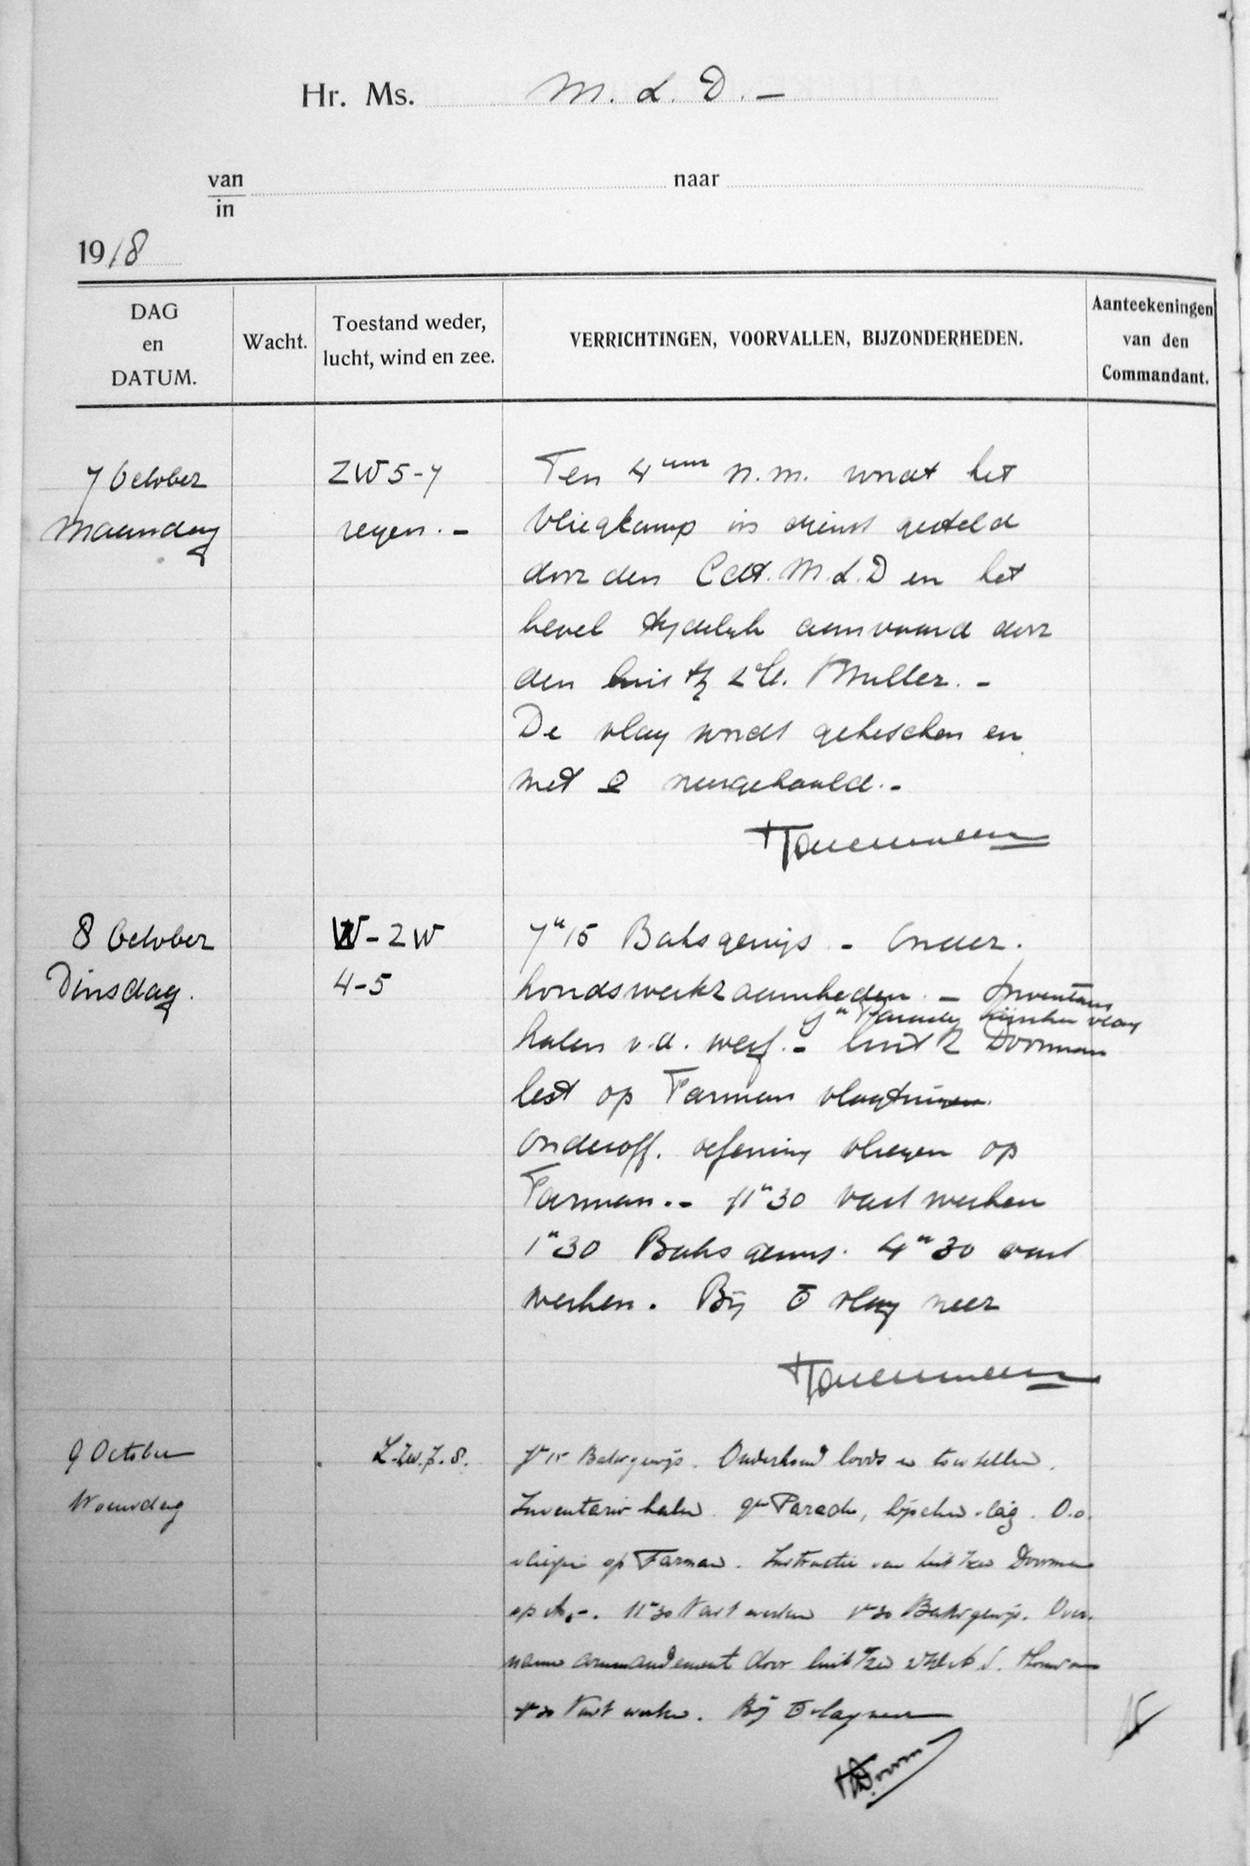 Hr. Ms. M. L. D. -
van naar
in
1918
DAG en DATUM.
Wacht.
Toestand weder, lucht, wind en zee.
VERRICHTINGEN, VOORVALLEN, BIJZONDERHEDEN.
Aanteekeningen van den Commandant.
7 October
Maandag
ZW 5-7
regen. -
Ten 4 uur n.m. wordt het
vliegkamp in dienst gesteld
door den Cdt. M. L. D en het
bevel tijdelijk aanvaard door
den luit tz 2e kl. Muller. -
De vlag wordt geheschen en
met neergehaald. -
8 October
Dinsdag.
W - ZW
4-5
7u15 Baksgewijs - Onder.
houdswerkzaamheden. - Inventaris
9u Parade hijschen vlag
halen v.d. werf. - luit tz Doorman
lest op Farman
Onderoff. oefening vliegen op
Farman. - 11u30 vast werken
1u30 Baksgewijs. 4u30 vast
werken. Bij vlag neer
9 October
Woensdag
Z. Zw. 7. 8.
7u15 Baksgewijs. Onderhoud loods en toestellen.
Inventaris halen. 9u Parade, hijschen vlag. O.o.
vliegen op Farman. Instructie van luit tzee Doorman
op 11u30 Vast werken 1u30 Baksgewijs. Over.
name commandement door luit tzee
4u30 Vast werken. Bij vlag neer